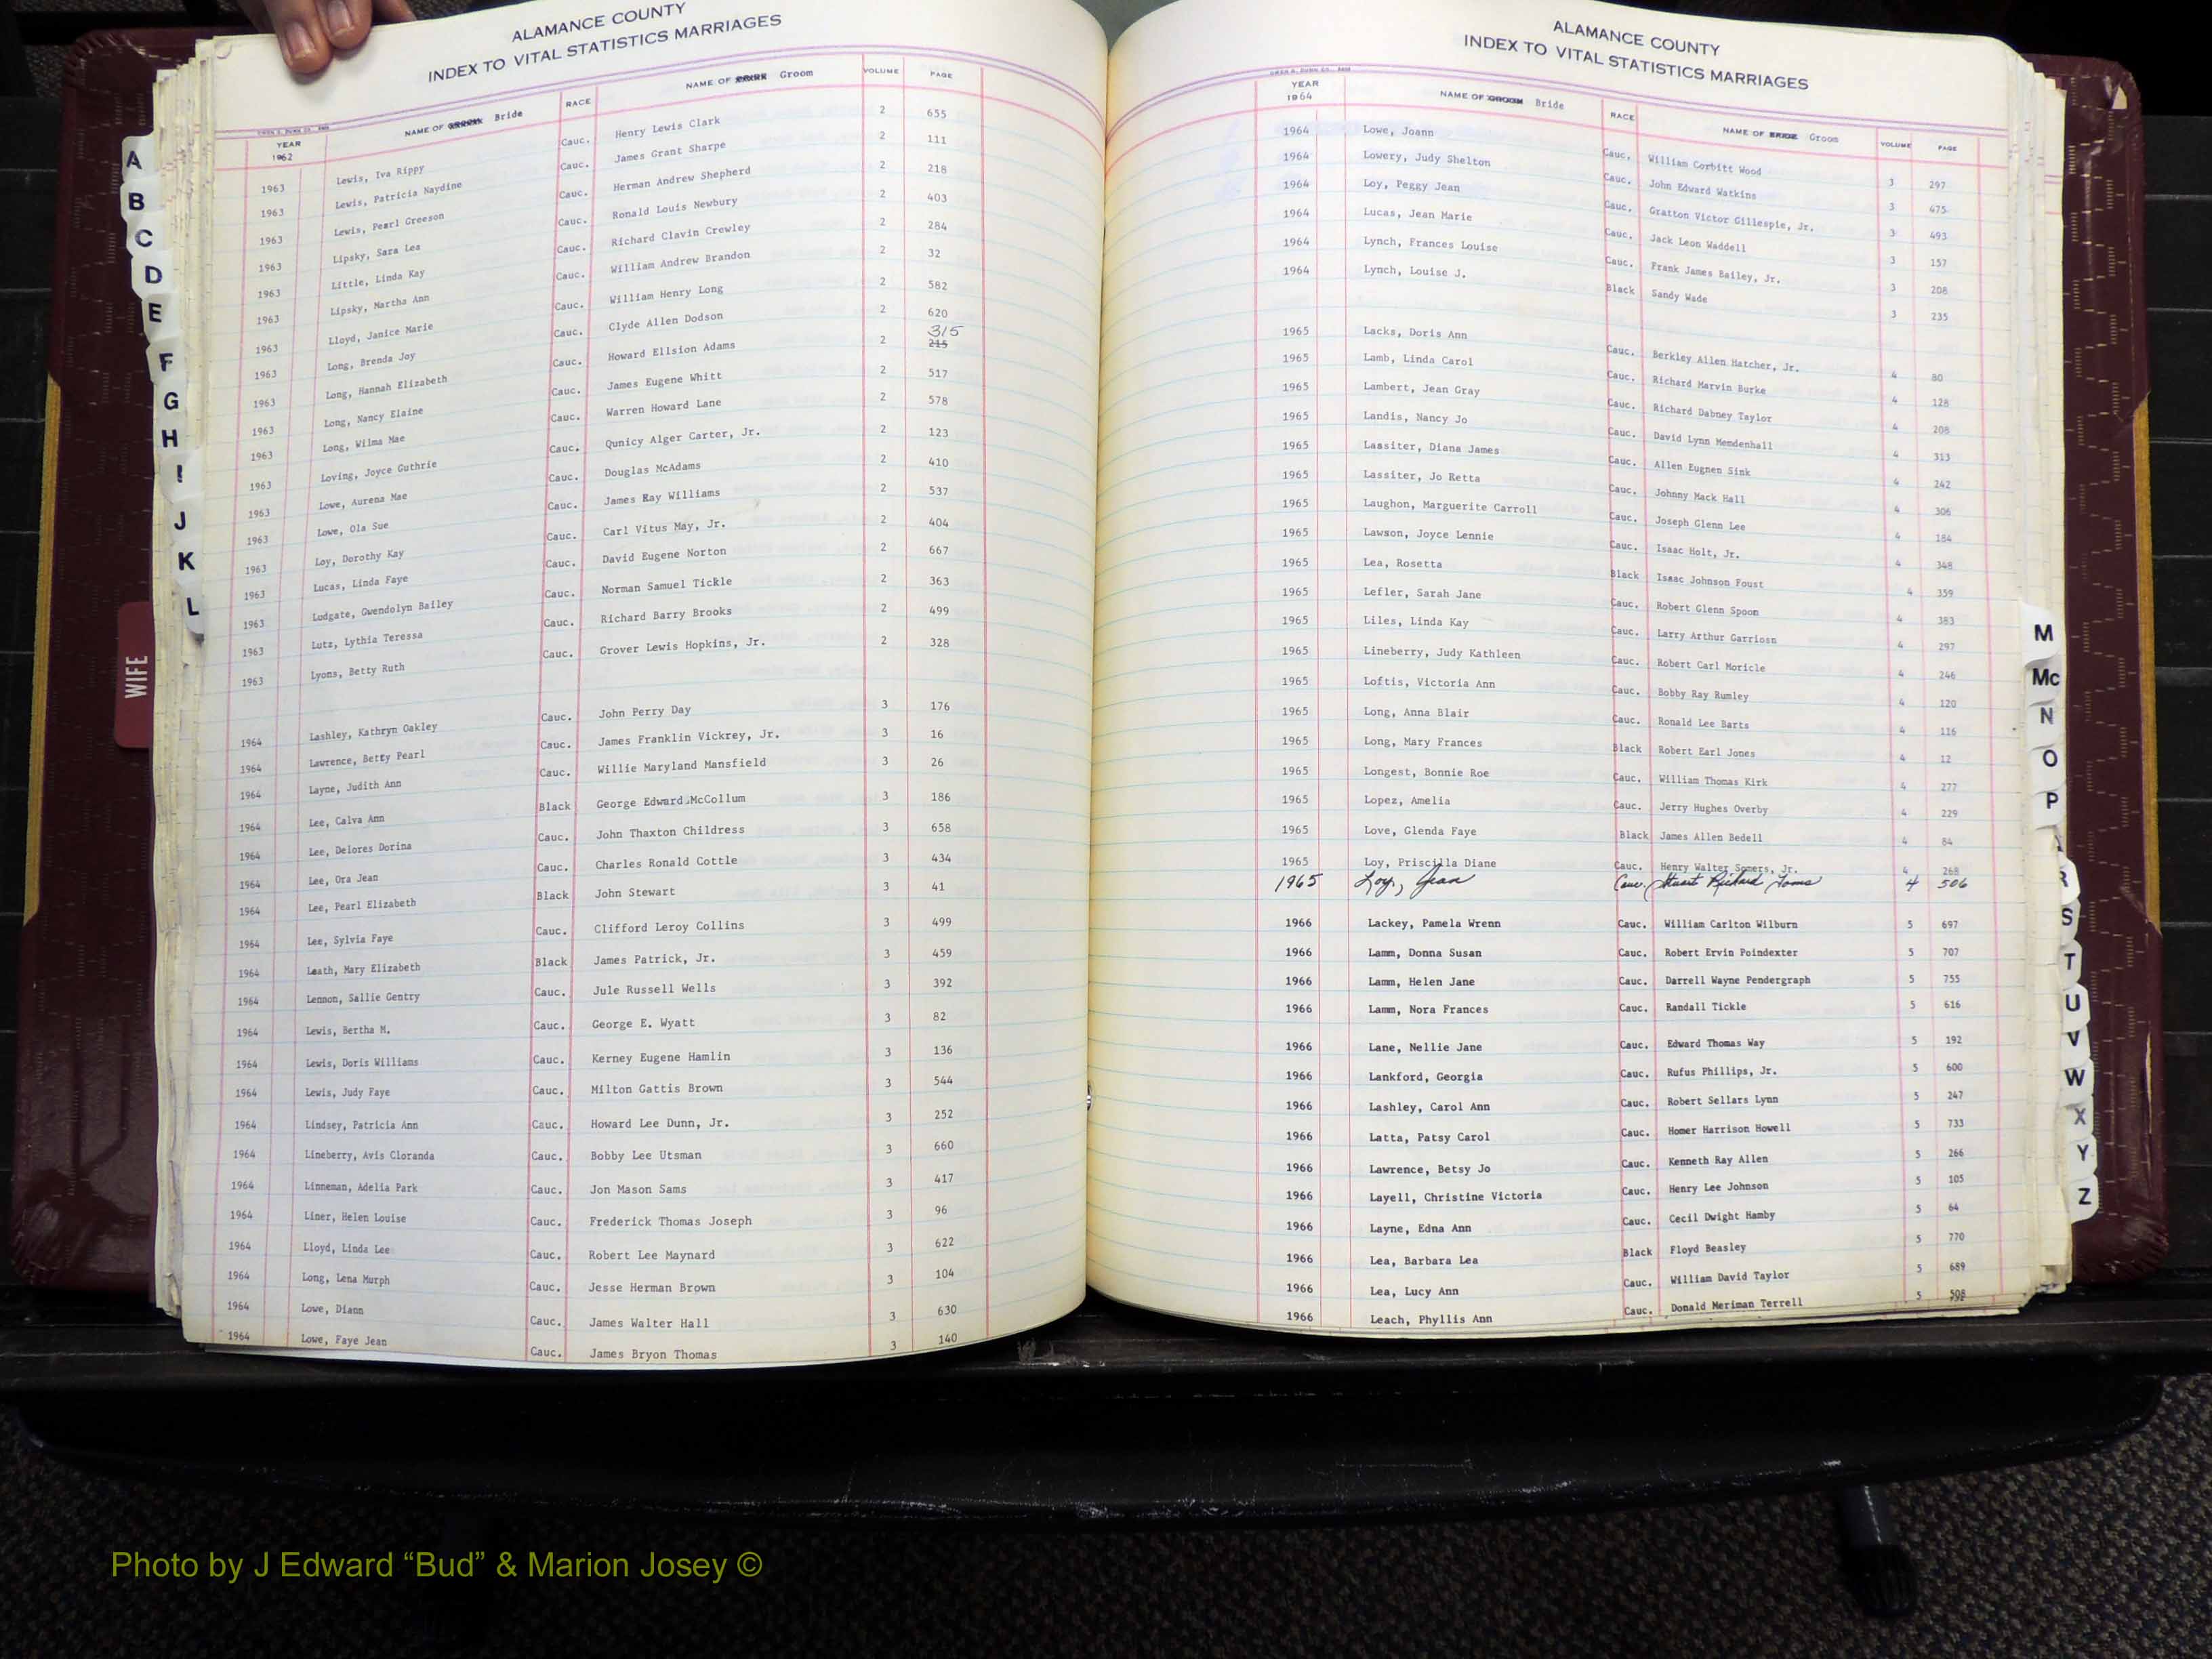 ALAMANCE COUNTY
INDEX TO VITAL STATISTICS MARRIAGES
YEAR NAME OF Bride RACE NAME OF Groom VOLUME PAGE
1962
1963 Lewis, Iva Rippy Cauc. Henry Lewis Clark 2 655
1963 Lewis, Patricia Naydine Cauc. James Grant Sharpe 2 111
1963 Lewis, Pearl Greeson Cauc. Herman Andrew Shepherd 2 218
1963 Lipsky, Sara Lea Cauc. Ronald Louis Newbury 2 403
1963 Little, Linda Kay Cauc. Richard Clavin Crewley 2 284
1963 Lipsky, Martha Ann Cauc. William Andrew Brandon 2 32
1963 Lloyd, Janice Marie Cauc. William Henry Long 2 582
1963 Long, Brenda Joy Cauc. Clyde Allen Dodson 2 620
1963 Long, Hannah Elizabeth Cauc. Howard Ellsion Adams 2 315 215
1963 Long, Nancy Elaine Cauc. James Eugene Whitt 2 517
1963 Long, Wilma Mae Cauc. Warren Howard Lane 2 578
1963 Loving, Joyce Guthrie Cauc. Qunicy Alger Carter, Jr. 2 123
1963 Lowe, Aurena Mae Cauc. Douglas McAdams 2 410
1963 Lowe, Ola Sue Cauc. James Ray Williams 2 537
1963 Loy, Dorothy Kay Cauc. Carl Vitus May, Jr. 2 404
1963 Lucas, Linda Faye Cauc. David Eugene Norton 2 667
1963 Ludgate, Gwendolyn Bailey Cauc. Norman Samuel Tickle 2 363
1963 Lutz, Lythia Teressa Cauc. Richard Barry Brooks 2 499
1963 Lyons, Betty Ruth Cauc. Grover Lewis Hopkins, Jr. 2 328
1964 Lashley, Kathryn Oakley Cauc. John Perry Day 3 176
1964 Lawrence, Betty Pearl Cauc. James Franklin Vickrey, Jr. 3 16
1964 Layne, Judith Ann Cauc. Willie Maryland Mansfield 3 26
1964 Lee, Calva Ann Black George Edward McCollum 3 186
1964 Lee, Delores Dorina Cauc. John Thaxton Childress 3 658
1964 Lee, Ora Jean Cauc. Charles Ronald Cottle 3 434
1964 Lee, Pearl Elizabeth Black John Stewart 3 41
1964 Lee, Sylvia Faye Cauc. Clifford Leroy Collins 3 499
1964 Leath, Mary Elizabeth Black James Patrick, Jr. 3 459
1964 Lennon, Sallie Gentry Cauc. Jule Russell Wells 3 392
1964 Lewis, Bertha M. Cauc. George E. Wyatt 3 82
1964 Lewis, Doris Williams Cauc. Kerney Eugene Hamlin 3 136
1964 Lewis, Judy Faye Cauc. Milton Gattis Brown 3 544
1964 Lindsey, Patricia Ann Cauc. Howard Lee Dunn, Jr. 3 252
1964 Lineberry, Avis Cloranda Cauc. Bobby Lee Utsman 3 660
1964 Linneman, Adelia Park Cauc. Jon Mason Sams 3 417
1964 Liner, Helen Louise Cauc. Frederick Thomas Joseph 3 96
1964 Lloyd, Linda Lee Cauc. Robert Lee Maynard 3 622
1964 Long, Lena Murph Cauc. Jesse Herman Brown 3 104
1964 Lowe, Diann Cauc. James Walter Hall 3 630
1964 Lowe, Faye Jean Cauc. James Bryon Thomas 3 140
A
B
C
D
E
F
G
H
I
J
K
L
WIFE
ALAMANCE COUNTY
INDEX TO VITAL STATISTICS MARRIAGES
YEAR NAME OF GROOM Bride RACE NAME OF BRIDE Groom VOLUME PAGE
1964
1964 Lowe, Joann Cauc. William Corbitt Wood 3 297
1964 Lowery, Judy Shelton Cauc. John Edward Watkins 3 475
1964 Loy, Peggy Jean Cauc. Gratton Victor Gillespie, Jr. 3 493
1964 Lucas, Jean Marie Cauc. Jack Leon Waddell 3 157
1964 Lynch, Frances Louise Cauc. Frank James Bailey, Jr. 3 208
1964 Lynch, Louise J. Black Sandy Wade 3 235
1965 Lacks, Doris Ann Cauc. Berkley Allen Hatcher, Jr. 4 80
1965 Lamb, Linda Carol Cauc. Richard Marvin Burke 4 128
1965 Lambert, Jean Gray Cauc. Richard Dabney Taylor 4 208
1965 Landis, Nancy Jo Cauc. David Lynn Memdenhall 4 313
1965 Lassiter, Diana James Cauc. Allen Eugnen Sink 4 242
1965 Lassiter, Jo Retta Cauc. Johnny Mack Hall 4 306
1965 Laughon, Marguerite Carroll Cauc. Joseph Glenn Lee 4 184
1965 Lawson, Joyce Lennie Cauc. Isaac Holt, Jr. 4 348
1965 Lea, Rosetta Black Isaac Johnson Foust 4 359
1965 Lefler, Sarah Jane Cauc. Robert Glenn Spoon 4 383
1965 Liles, Linda Kay Cauc. Larry Arthur Garriosn 4 297
1965 Lineberry, Judy Kathleen Cauc. Robert Carl Moricle 4 246
1965 Loftis, Victoria Ann Cauc. Bobby Ray Rumley 4 120
1965 Long, Anna Blair Cauc. Ronald Lee Barts 4 116
1965 Long, Mary Frances Black Robert Earl Jones 4 12
1965 Longest, Bonnie Roe Cauc. William Thomas Kirk 4 277
1965 Lopez, Amelia Cauc. Jerry Hughes Overby 4 229
1965 Love, Glenda Faye Black James Allen Bedell 4 84
1965 Loy, Priscilla Diane Cauc. Henry Walter Somers, Jr. 4 268
1965 Loy, Jean Cauc. Stuart Richard Toms 4 506
1966 Lackey, Pamela Wrenn Cauc. William Carlton Wilburn 5 697
1966 Lamm, Donna Susan Cauc. Robert Ervin Poindexter 5 707
1966 Lamm, Helen Jane Cauc. Darrell Wayne Pendergraph 5 755
1966 Lamm, Nora Frances Cauc. Randall Tickle 5 616
1966 Lane, Nellie Jane Cauc. Edward Thomas Way 5 192
1966 Lankford, Georgia Cauc. Rufus Phillips, Jr. 5 600
1966 Lashley, Carol Ann Cauc. Robert Sellars Lynn 5 247
1966 Latta, Patsy Carol Cauc. Homer Harrison Howell 5 733
1966 Lawrence, Betsy Jo Cauc. Kenneth Ray Allen 5 266
1966 Layell, Christine Victoria Cauc. Henry Lee Johnson 5 105
1966 Layne, Edna Ann Cauc. Cecil Dwight Hamby 5 64
1966 Lea, Barbara Lea Black Floyd Beasley 5 770
1966 Lea, Lucy Ann Cauc. William David Taylor 5 689
1966 Leach, Phyllis Ann Cauc. Donald Meriman Terrell 5
M
Mc
N
O
P
R
S
T
U
V
W
X
Y
Z
Photo by J Edward “Bud” & Marion Josey ©